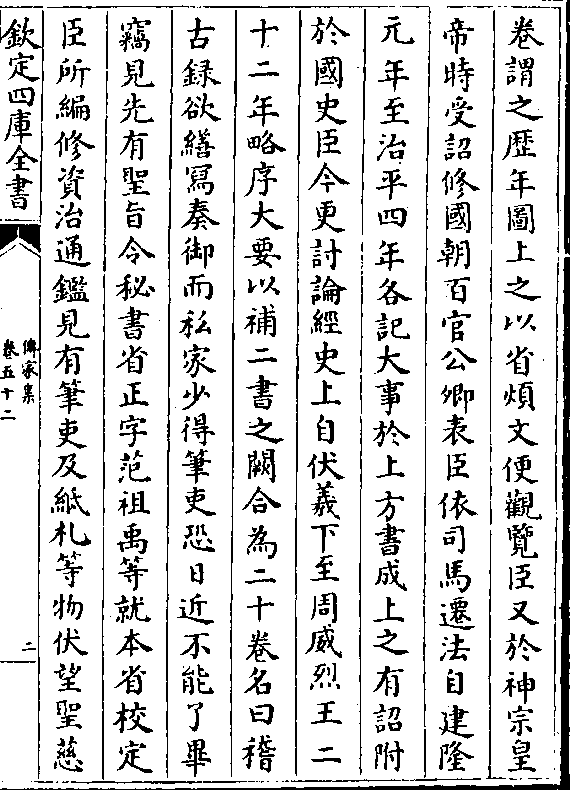 卷謂之歴年圖上之以省煩文便觀覽臣又於神宗皇
帝時受詔修國朝百官公卿表臣依司馬遷法自建隆
元年至治平四年各記大事於上方書成上之有詔附
於國史臣今更討論經史上自伏羲下至周威烈王二
十二年略序大要以補二書之闕合為二十卷名曰稽
古録欲繕寫奏御而私家少得筆吏恐日近不能了畢
竊見先有聖旨令秘書省正字范祖禹等就本省校定
臣所編修資治通鑑見有筆吏及紙札等物伏望聖慈
欽定四庫全書
傳家集
卷五十二
二